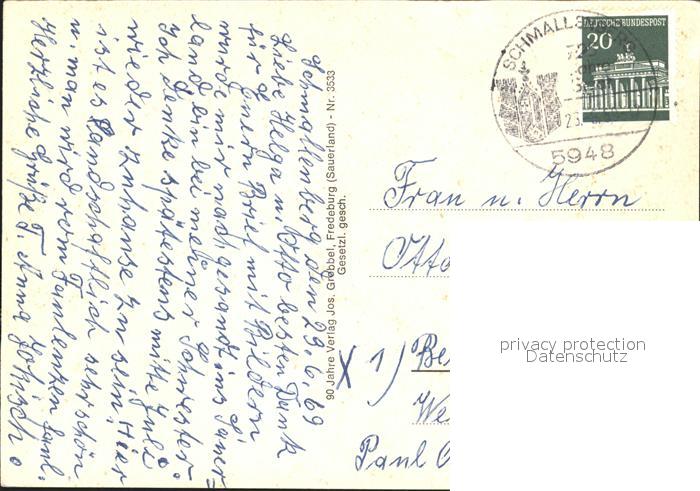 Schmallenberg den 29.6.69
Liebe Helga u. Otto besten Dank
für Euern Brief mit Bildern
wurde mir nachgesandt ins Sauer=
land bin bei meiner Schwester.
Ich denke spätestens mitte Juli
wieder Zuhause zu sein, Hier
ist es Landschaftlich sehr schön
u. man wird vom Faulenzen faul.
Herzliche Grüße T. Anna
90 Jahre Verlag Jos. Grobbel, Fredeburg (Sauerland) - Nr. 3533
Gesetzl. gesch.
SCHMALLENBERG
5948
DEUTSCHE BUNDESPOST
20
Frau u. Herrn
Otto
X 1) Be
We
Paul
privacy protection
Datenschutz